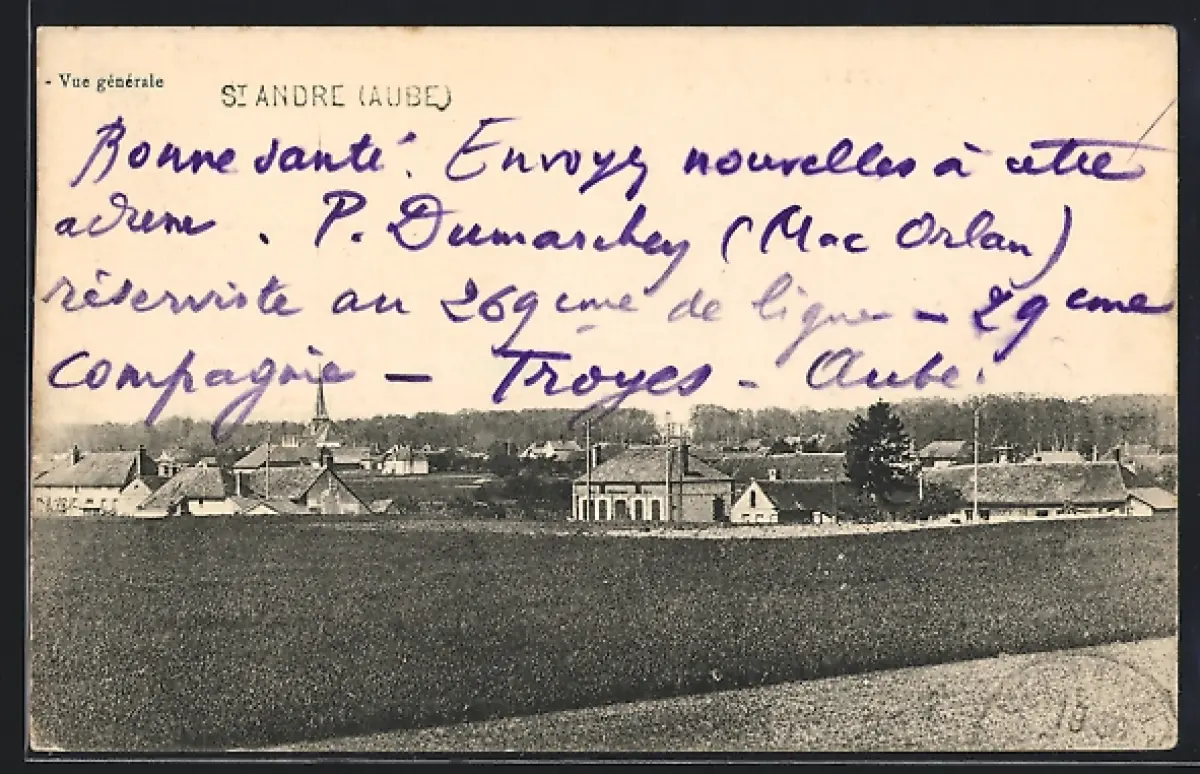 - Vue générale
ST ANDRE (AUBE)
Bonne santé. Envoyez nouvelles à cette
adresse. P. Dumarchey (Mac Orlan)
réserviste au 269eme de ligne - 29eme
Compagnie - Troyes - Aube.